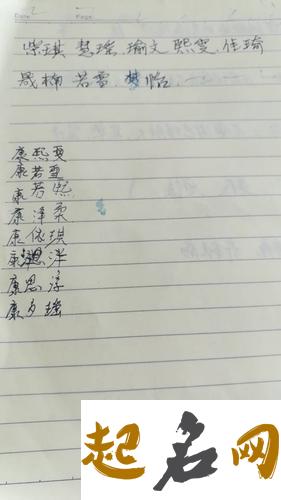 Date Page
紫琪 慧瑶 瑜文 熙雯 佳琦
晟楠 若雪 梦怡
康熙雯
康若雪
康若熙
康泽柔
康依琪
康思洋
康思淳
康夕瑶
起名网